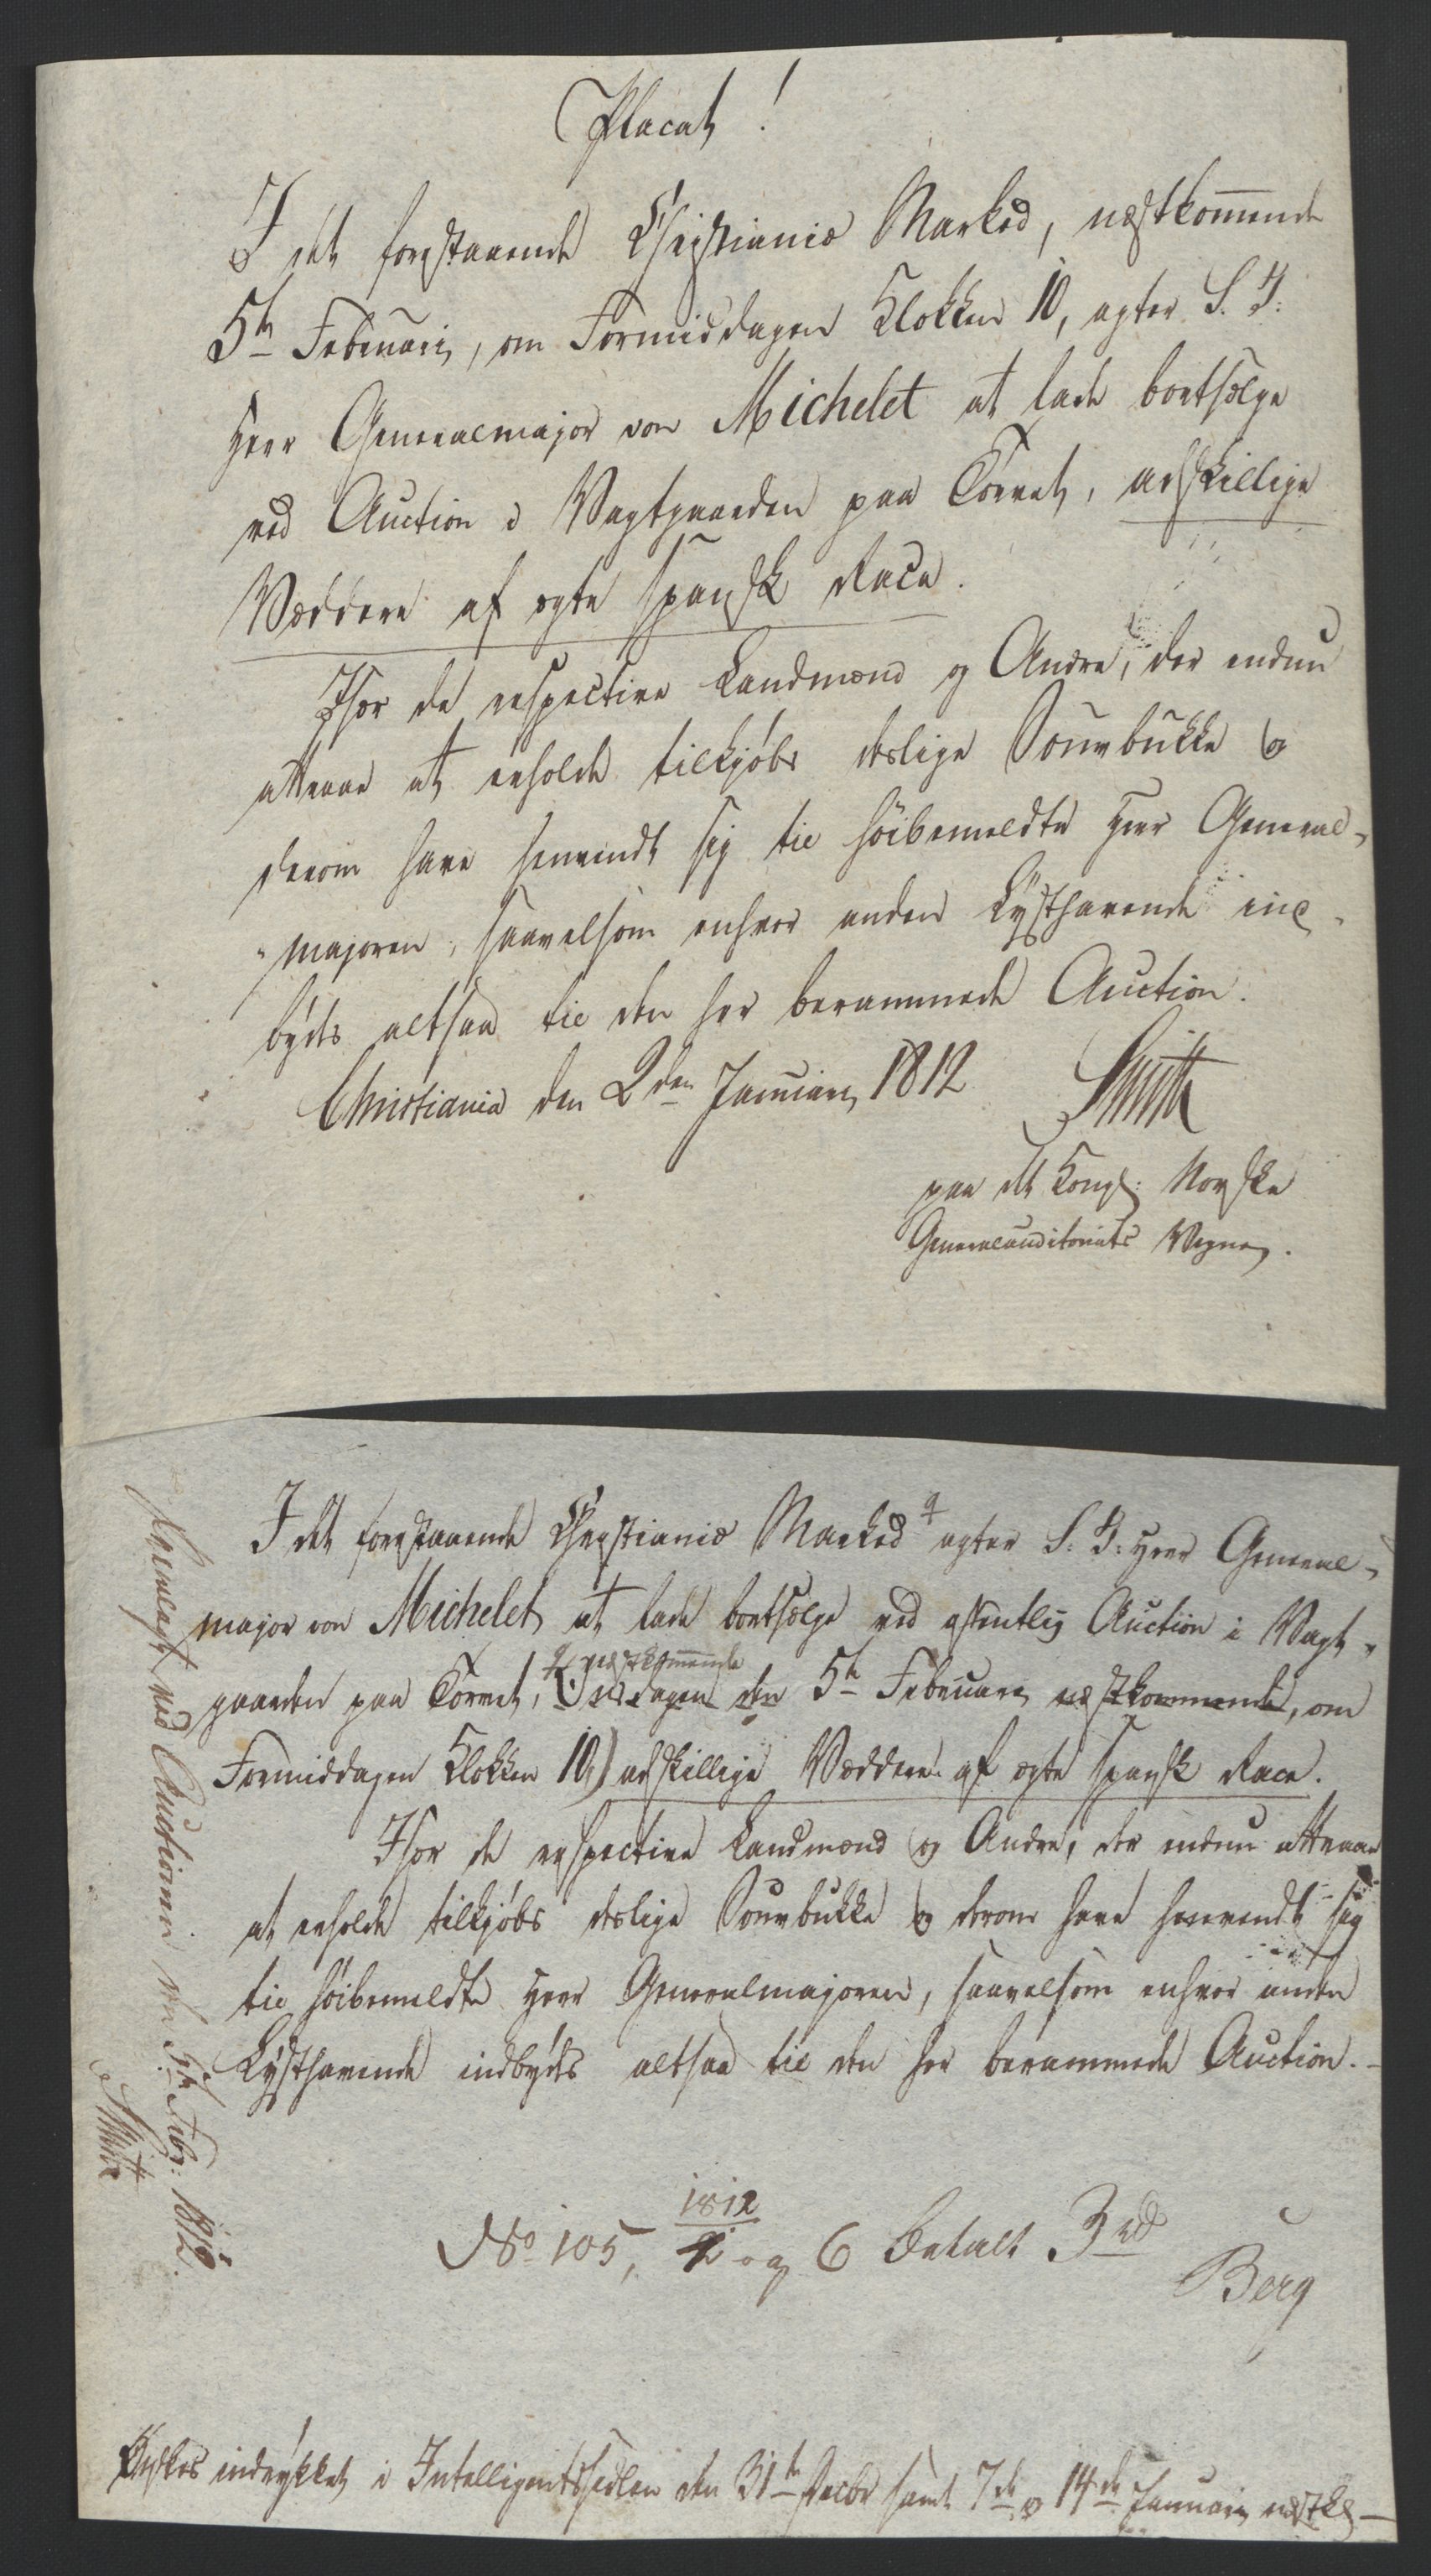 Placat!
I det forestaaende Christiania Marked, næstkommende
5te Februari, om Formiddagen Klokken 10, agter S. T.
Herr Generalmajor von Michelet at lade bortsælge
ved Auction i Vagtgaarden paa Torvet, adskillige
Væddere af ægte spansk Race.
Især de respective Landmænd og Andre, der endnu
attraae at erholde tilkjøbs deslige Souvbukke og
derom have henvendt sig til høibemeldte Herr General-
majoren, saavelsom enhver anden Lysthavende ind-
bydes altsaa til den her berammede Auction.
Christiania den 2den Januari 1812
Smith
paa det Kongl: Norske
Generalauditoriats Vegne.
I det forestaaende Christiania Marked agter S. T. Herr General-
major von Michelet at lade bortsælge ved offentlig Auction i Vagt-
gaarden paa Torvet, næstkommende Onsdagen den 5te Februari næstkommende, om
Formiddagen Klokken 10) adskillige Væddere af ægte spansk Race.
Især de respective Landmænd og Andre, der endnu attraae
at erholde tilkjøbs deslige Souvbukke og derom have henvendt sig
til høibemeldte Herr Generalmajoren, saavelsom enhver anden
Lysthavende indbydes altsaa til den her berammede Auction.
No 105, 1812 2 og 6 betalt 3 rd
Berg
Ønskes indrykket i Intelligentssedlen den 31te Decbr samt 7de og 14de Januari næstk
Fremlagt ved Auctionen den 5te Febr: 1812.
Smith